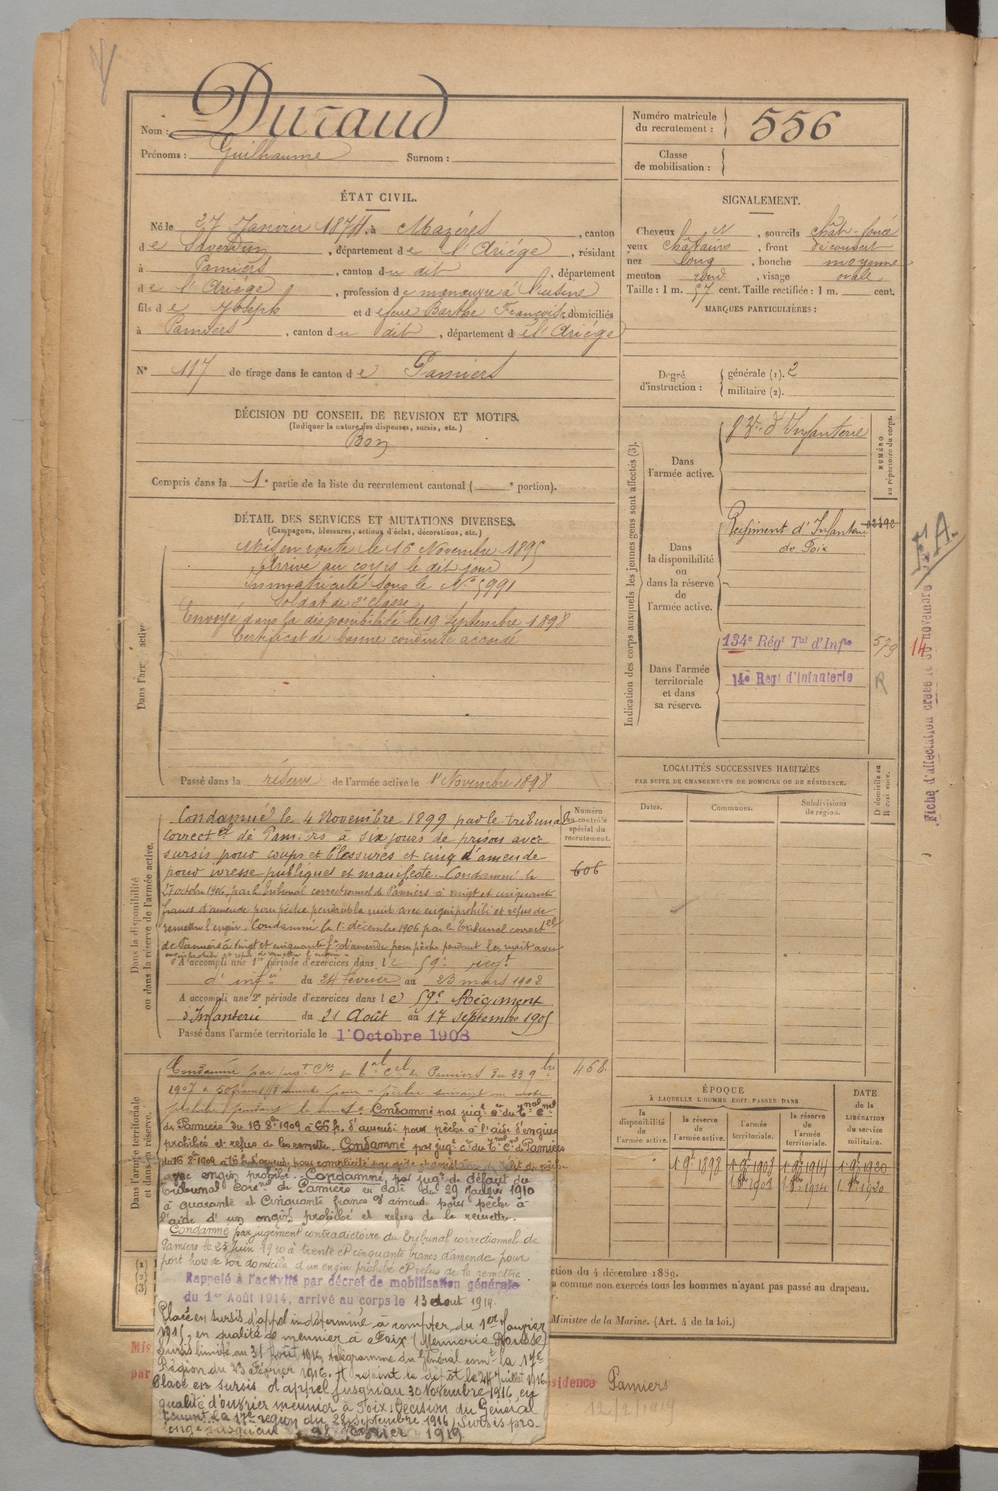 Nom : Durand
Prénoms : Guilhaume Surnom :
Numéro matricule
du recrutement : 556
Classe
de mobilisation :
ÉTAT CIVIL.
Né le 27 Janvier 1874, à Mazéres, canton
de Saverdun, département de l'Ariége, résidant
à Pamiers, canton du dit, département
de l'Ariége, profession de manœuvre à l'usine
fils de Joseph et de feue Barthe Françoise, domiciliés
à Pamiers, canton du dit, département de l'Ariége
N° 117 de tirage dans le canton de Pamiers
SIGNALEMENT.
Cheveux N, sourcils chât-foncé
yeux châtains, front découvert
nez long, bouche moyenne
menton rond, visage ovale
Taille : 1 m. 57 cent. Taille rectifiée : 1 m. cent.
MARQUES PARTICULIÈRES :
Degré
d'instruction :
générale (1). 2
militaire (2).
DÉCISION DU CONSEIL DE REVISION ET MOTIFS.
(Indiquer la nature des dispenses, sursis, etc.)
Bon
Compris dans la 1e partie de la liste du recrutement cantonal ( e portion).
DÉTAIL DES SERVICES ET MUTATIONS DIVERSES.
(Campagnes, blessures, actions d'éclat, décorations, etc.)
Dans l'armée active
Mis en route le 16 Novembre 1895
Arrivé au corps le dit jour
Immatriculé sous le N° 5991
Soldat de 2e classe
Envoyé dans la disponibilité le 19 Septembre 1898
Certificat de bonne conduite accordé
Passé dans la réserve de l'armée active le 1er Novembre 1898
Indication des corps auxquels les jeunes gens sont affectés (3).
NUMÉRO
au répertoire du corps.
Dans
l'armée active.
d'Infanterie
Dans
la disponibilité
ou
dans la réserve
de
l'armée active.
Régiment d'Infanterie
de Foix
Dans l'armée
territoriale
et dans
sa réserve.
134e Régt Tal d'Infie
579
14e Regt d'Infanterie
R
14
F.A.
Fiche d'affectation créée le 30 novembre
LOCALITÉS SUCCESSIVES HABITÉES
PAR SUITE DE CHANGEMENTS DE DOMICILE OU DE RÉSIDENCE.
Dates.
Communes.
Subdivisions
de région.
D domicile ou
R résidence.
Dans la disponibilité
ou dans la réserve de l'armée active.
Numéro
au contrôle
spécial du
recrutement.
606
Condamné le 4 Novembre 1899 par le tribunal
correctel de Pamiers à six jours de prison avec
sursis pour coups et blessures et cinq f d'amende
pour ivresse publique et manifeste. Condamné le
27 octobre 1906, par le tribunal correctionnel de Pamiers à vingt et cinquante
francs d'amende pour pêche pendant la nuit avec engin prohibé et refus de
remettre l'engin. Condamné le 1er décembre 1906 par le Tribunal correctel
de Pamiers à vingt et cinquante f. d'amende pour pêche pendant la nuit avec
engin prohibé et refus de remettre l'engin.
A accompli une 1re période d'exercices dans le 59e régt
d'infie du 24 février au 23 mars 1902
A accompli une 2e période d'exercices dans le 59e Régiment
d'Infanterie du 21 Août au 17 septembre 1905
Passé dans l'armée territoriale le 1 Octobre 1908
Dans l'armée territoriale
et dans sa réserve.
468
Condamné par jugt
de Pamiers du 23 9bre
1907 à 50 francs d'amende pour pêche
pendant la nuit. Condamné par jugt
de Pamiers du 16 Xbre 1909 à 65 fr. d'amende pour pêche à l'aide d'engins
prohibés et refus de les remettre. Condamné par jugt de Pamiers
avec engin prohibé. Condamné par jugt de défaut du
Tribunal Corel de Pamiers en date du 29 janvier 1910
à quarante et cinquante francs d'amende pour pêche à
l'aide d'un engin prohibé et refus de le remettre.
Condamné par jugement contradictoire du Tribunal correctionnel de
Pamiers le 25 juin 1910 à trente et cinquante francs d'amende pour
port hors de son domicile d'un engin prohibé et refus de le remettre
Rappelé à l'activité par décret de mobilisation générale
du 1er Août 1914, arrivé au corps le 13 Août 1914.
Placé en sursis d'appel indéterminé à compter du 1er Janvier
1915, en qualité de meunier à Foix
Sursis limité au 31 Août 1916, télégramme du Général comt la 17e
Région du 23 Février 1916. A rejoint le dépôt le 24 Juillet 1916
Placé en sursis d'appel jusqu'au 30 Novembre 1916 en
qualité d'ouvrier meunier à Foix. Décision du Général
Commt la 17e région du 28 septembre 1916. Sursis pro-
longé jusqu'au Février 1919
ÉPOQUE
À LAQUELLE L'HOMME DOIT PASSER DANS
la
disponibilité
de
l'armée active.
la réserve
de
l'armée active.
l'armée
territoriale.
la réserve
de
l'armée
territoriale.
DATE
de la
LIBÉRATION
du service
militaire.
1 9bre 1898
1 9bre 1908
1 9bre 1914
1 9bre 1920
1 8bre 1908
1 8bre 1914
1 8bre 1920
ction du 4 décembre 1889.
comme non exercés tous les hommes n'ayant pas passé au drapeau.
Ministre de la Marine. (Art. 4 de la loi.)
Mis
par
sidence Pamiers
12/2/1919